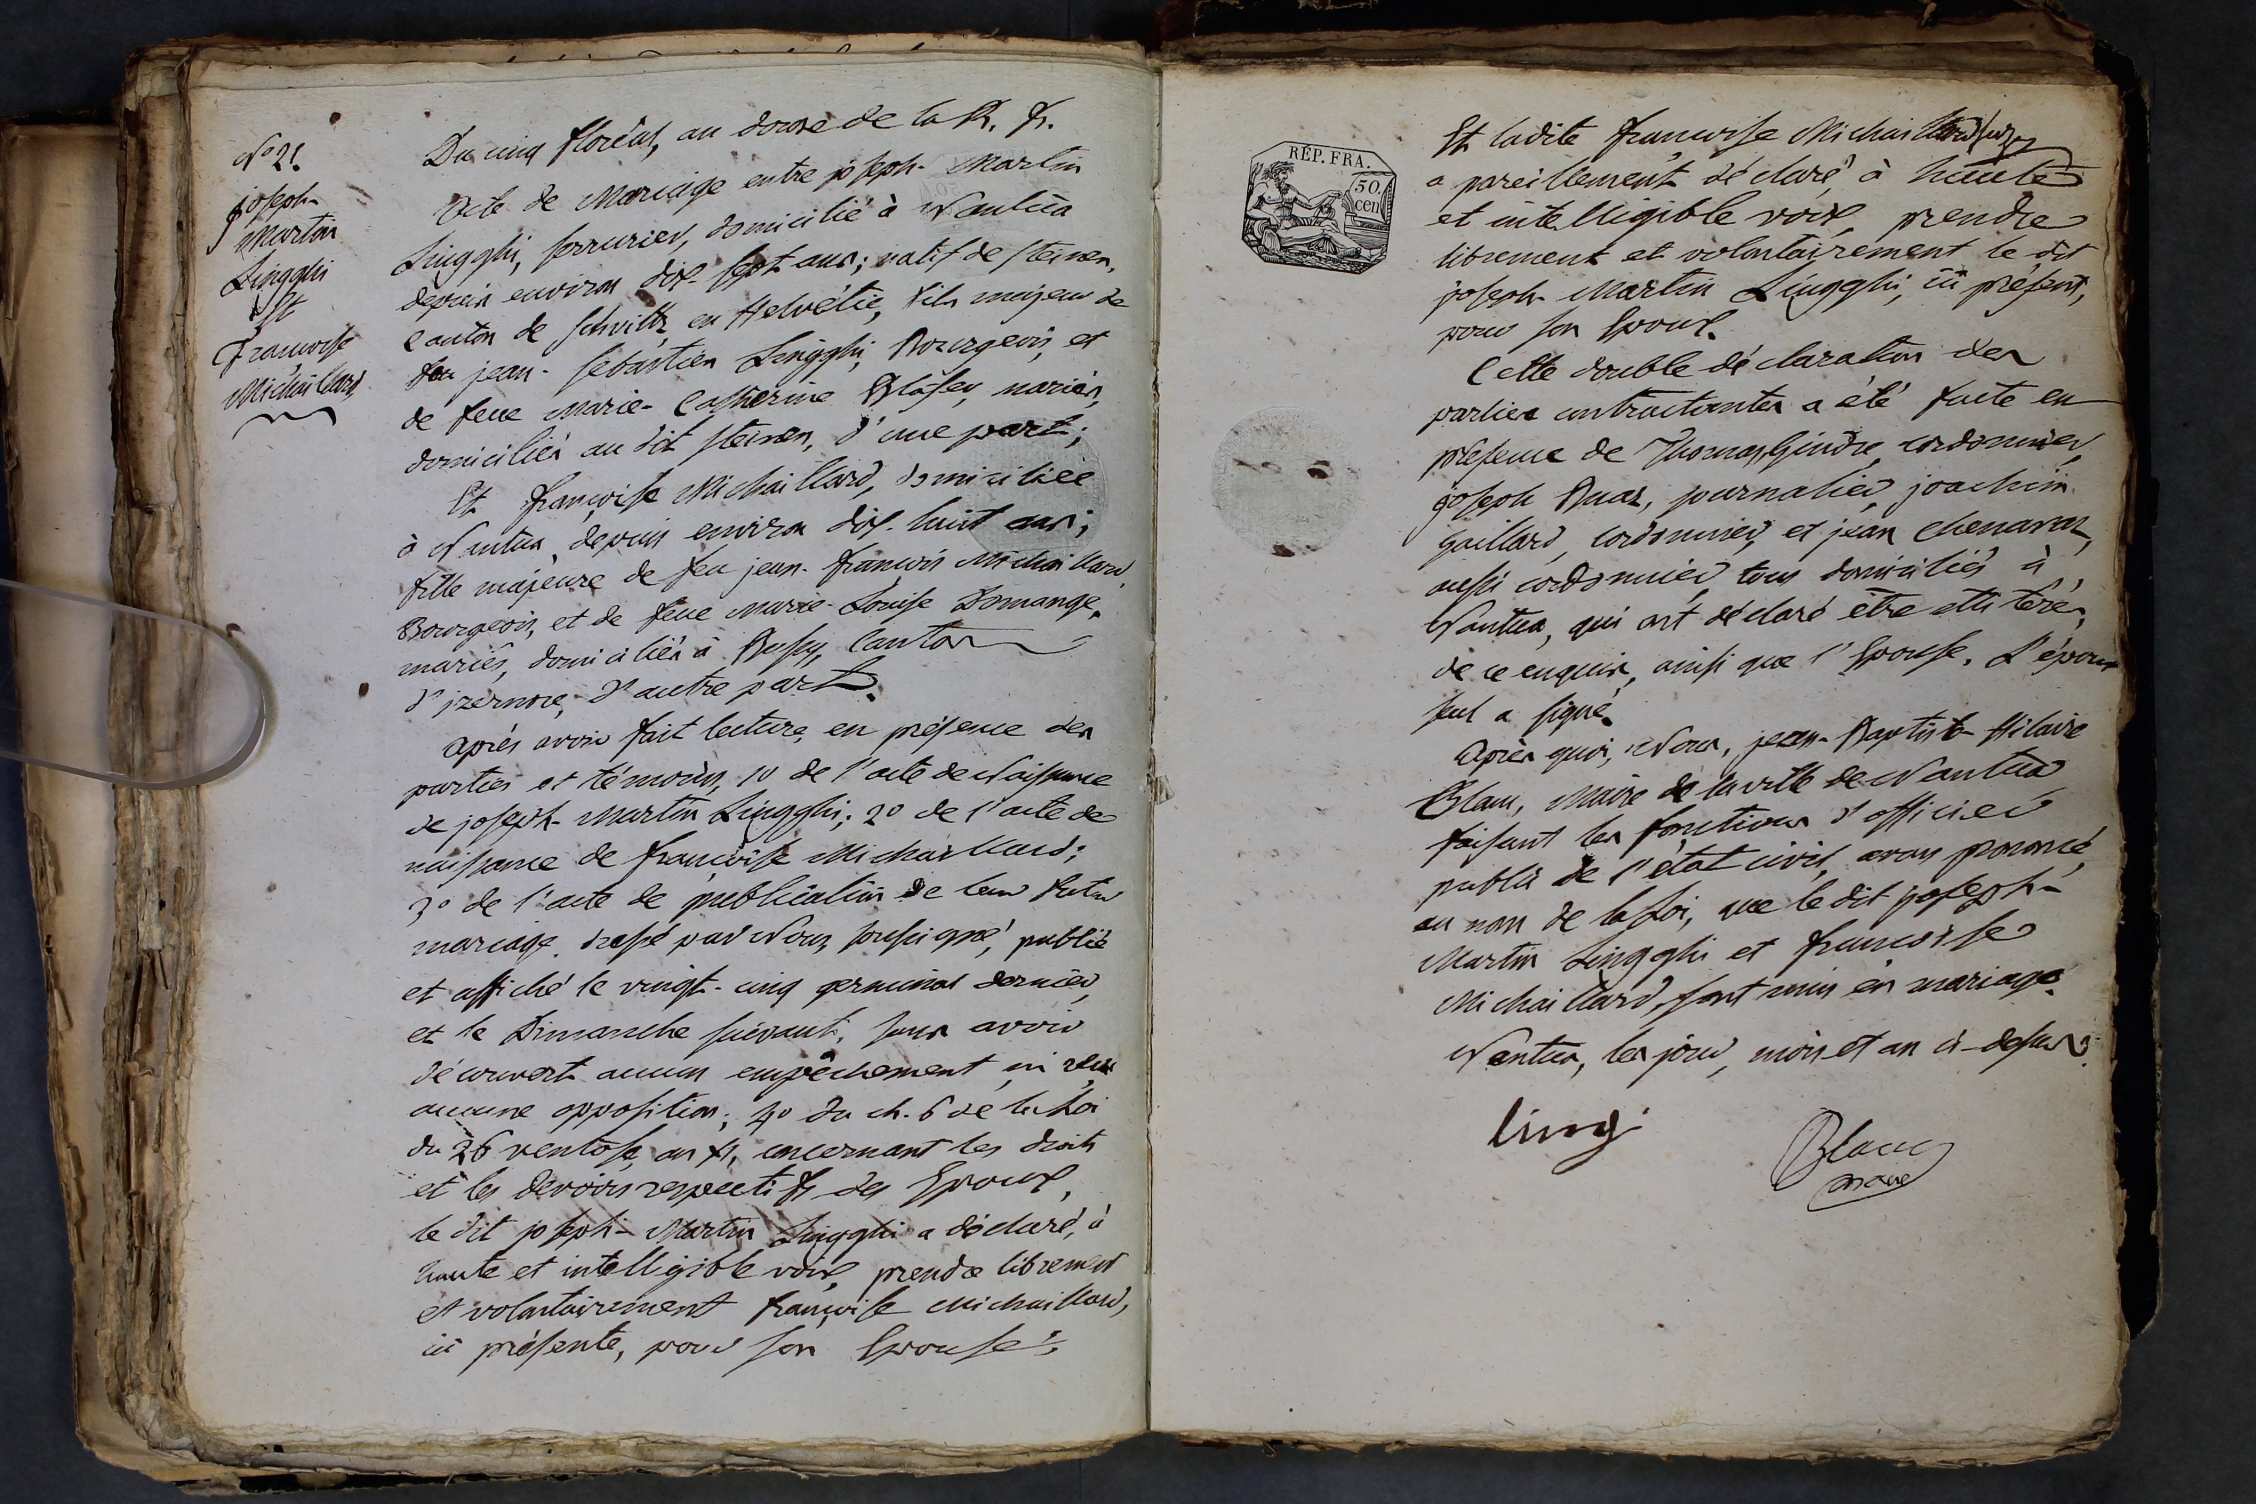 N° 21.
joseph-
Martin
Lingghi
Et
Françoise
Michaillard
Du cinq floréal, an douze de la R. fr.
Acte de Mariage entre joseph-Martin
Lingghi, serrurier, domicilié à Nantua
depuis environ dix-sept ans; natif de steinen,
canton de schvitz, en Helvétie, fils majeur de
feu jean-sébastien Lingghi, Bourgeois, et
de feue Marie-Catherine Blaser, mariés,
domiciliés au dit steinen, d'une part;
Et françoise Michaillard, domiciliée
à Nantua, depuis environ dix-huit ans;
fille majeure de feu jean-françois Michaillard,
Bourgeois, et de feue Marie-Louise Domange,
mariés, domiciliés à Bussy, Canton
d'izernore, d'autre part.
après avoir fait lecture, en présence des
parties et témoins, 1° de l'acte de Naissance
de joseph-Martin Lingghi; 2° de l'acte de
naissance de françoise Michaillard;
3° de l'acte de publication de leur futur
mariage, dressé par Nous soussigné, publié
et affiché le vingt-cinq germinal dernier,
et le Dimanche suivant, sans avoir
découvert aucun empêchement, ni reçu
aucune opposition; 4° du ch. 6 de la Loi
du 26 ventose, an XI, concernant les droits
et les devoirs respectifs des Epoux,
le dit joseph-Martin Lingghi a déclaré, à
haute et intelligible voix, prendre librement
et volontairement françoise Michaillard,
ici présente, pour son Epouse;
RÉP. FRA.
50
cen
Et ladite françoise Michaillard
a pareillement déclaré, à haute
et intelligible voix, prendre
librement et volontairement le dit
joseph-Martin Lingghi, ici présent,
pour son Epoux.
Cette double déclaration des
parties contractantes a été faite en
présence de Thomas Gindre, cordonnier,
joseph Buaz, journalier, joachim
Gaillard, cordonnier, et jean Chenavaz,
aussi cordonnier, tous domiciliés à
Nantua, qui ont déclaré être illiterés,
de ce enquis, ainsi que l'Epouse. L'époux
seul a signé.
Après quoi, Nous, jean-Baptiste-Hilaire
Blanc, Maire de la ville de Nantua
faisant les fonctions d'officier
public de l'état civil, avons prononcé,
au nom de la Loi, que le dit joseph-
Martin Lingghi et françoise
Michaillard, sont unis en mariage.
Nantua, les jour, mois et an ci-dessus.
Lingi
Blanc
maire